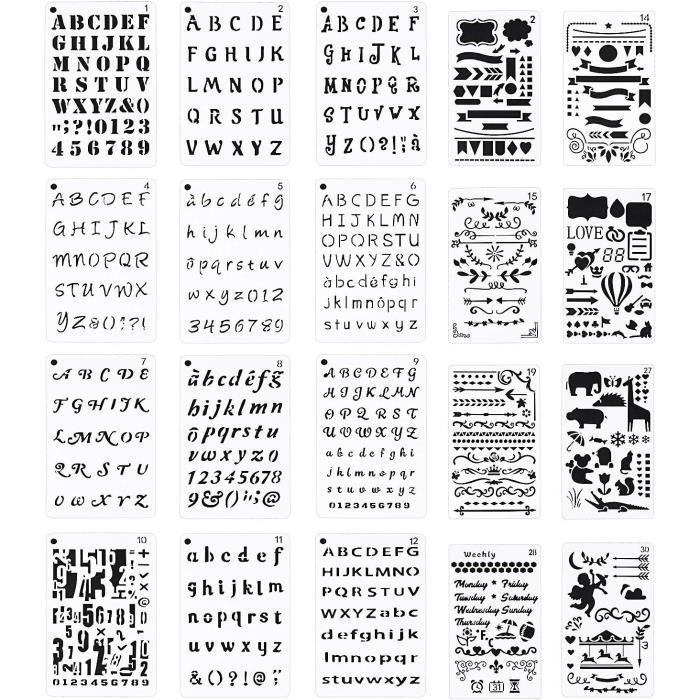 1
ABCDEF
GHIJKL
MNOPQ
RSTUV
WXYZ&()
";?!0123
456789
2
ABCDE
FGHIJK
LMNOP
QRSTU
VWXYZ
3
ABCDEF
GHIJKL
MNOPQR
STUVWX
YZ()?!;"à
2
14
4
ABCDEF
GHIJKL
MNOPQR
STUVWX
YZ&()?!
5
àbcdéfg
hijklmn
ôpqrstuv
wxyz012
3456789
6
ABCDEFG
HIJKLMN
OPQRSTU
VWXYZ&()
àbcdéfghi
jklmnôpqr
stuvwxyz
15
17
LOVE
88
7
ABCDE
FGHIJK
LMNOP
QRSTU
VWXYZ
8
àbcdéfg
hijklmn
ôpqrstu
vwxyzo
12345678
9&()";@
9
ABCDEFG
HIJKLMN
OPQRST
UVWXYZ
abcdefg
hijklmnop
qrstuvwxyz
0123456789
19
27
10
0123456789
11
abcdef
ghijklm
nopqrst
uvwxyz
&()?!@;"
12
ABCDEFG
HIJKLMNO
PQRSTUV
WXYZabc
defghijk
lmnopqr
stuvwxyz
28
Weekly
Monday Friday
Tuesday Saturday
Wednesday Sunday
Thursday
°F.C
31
30